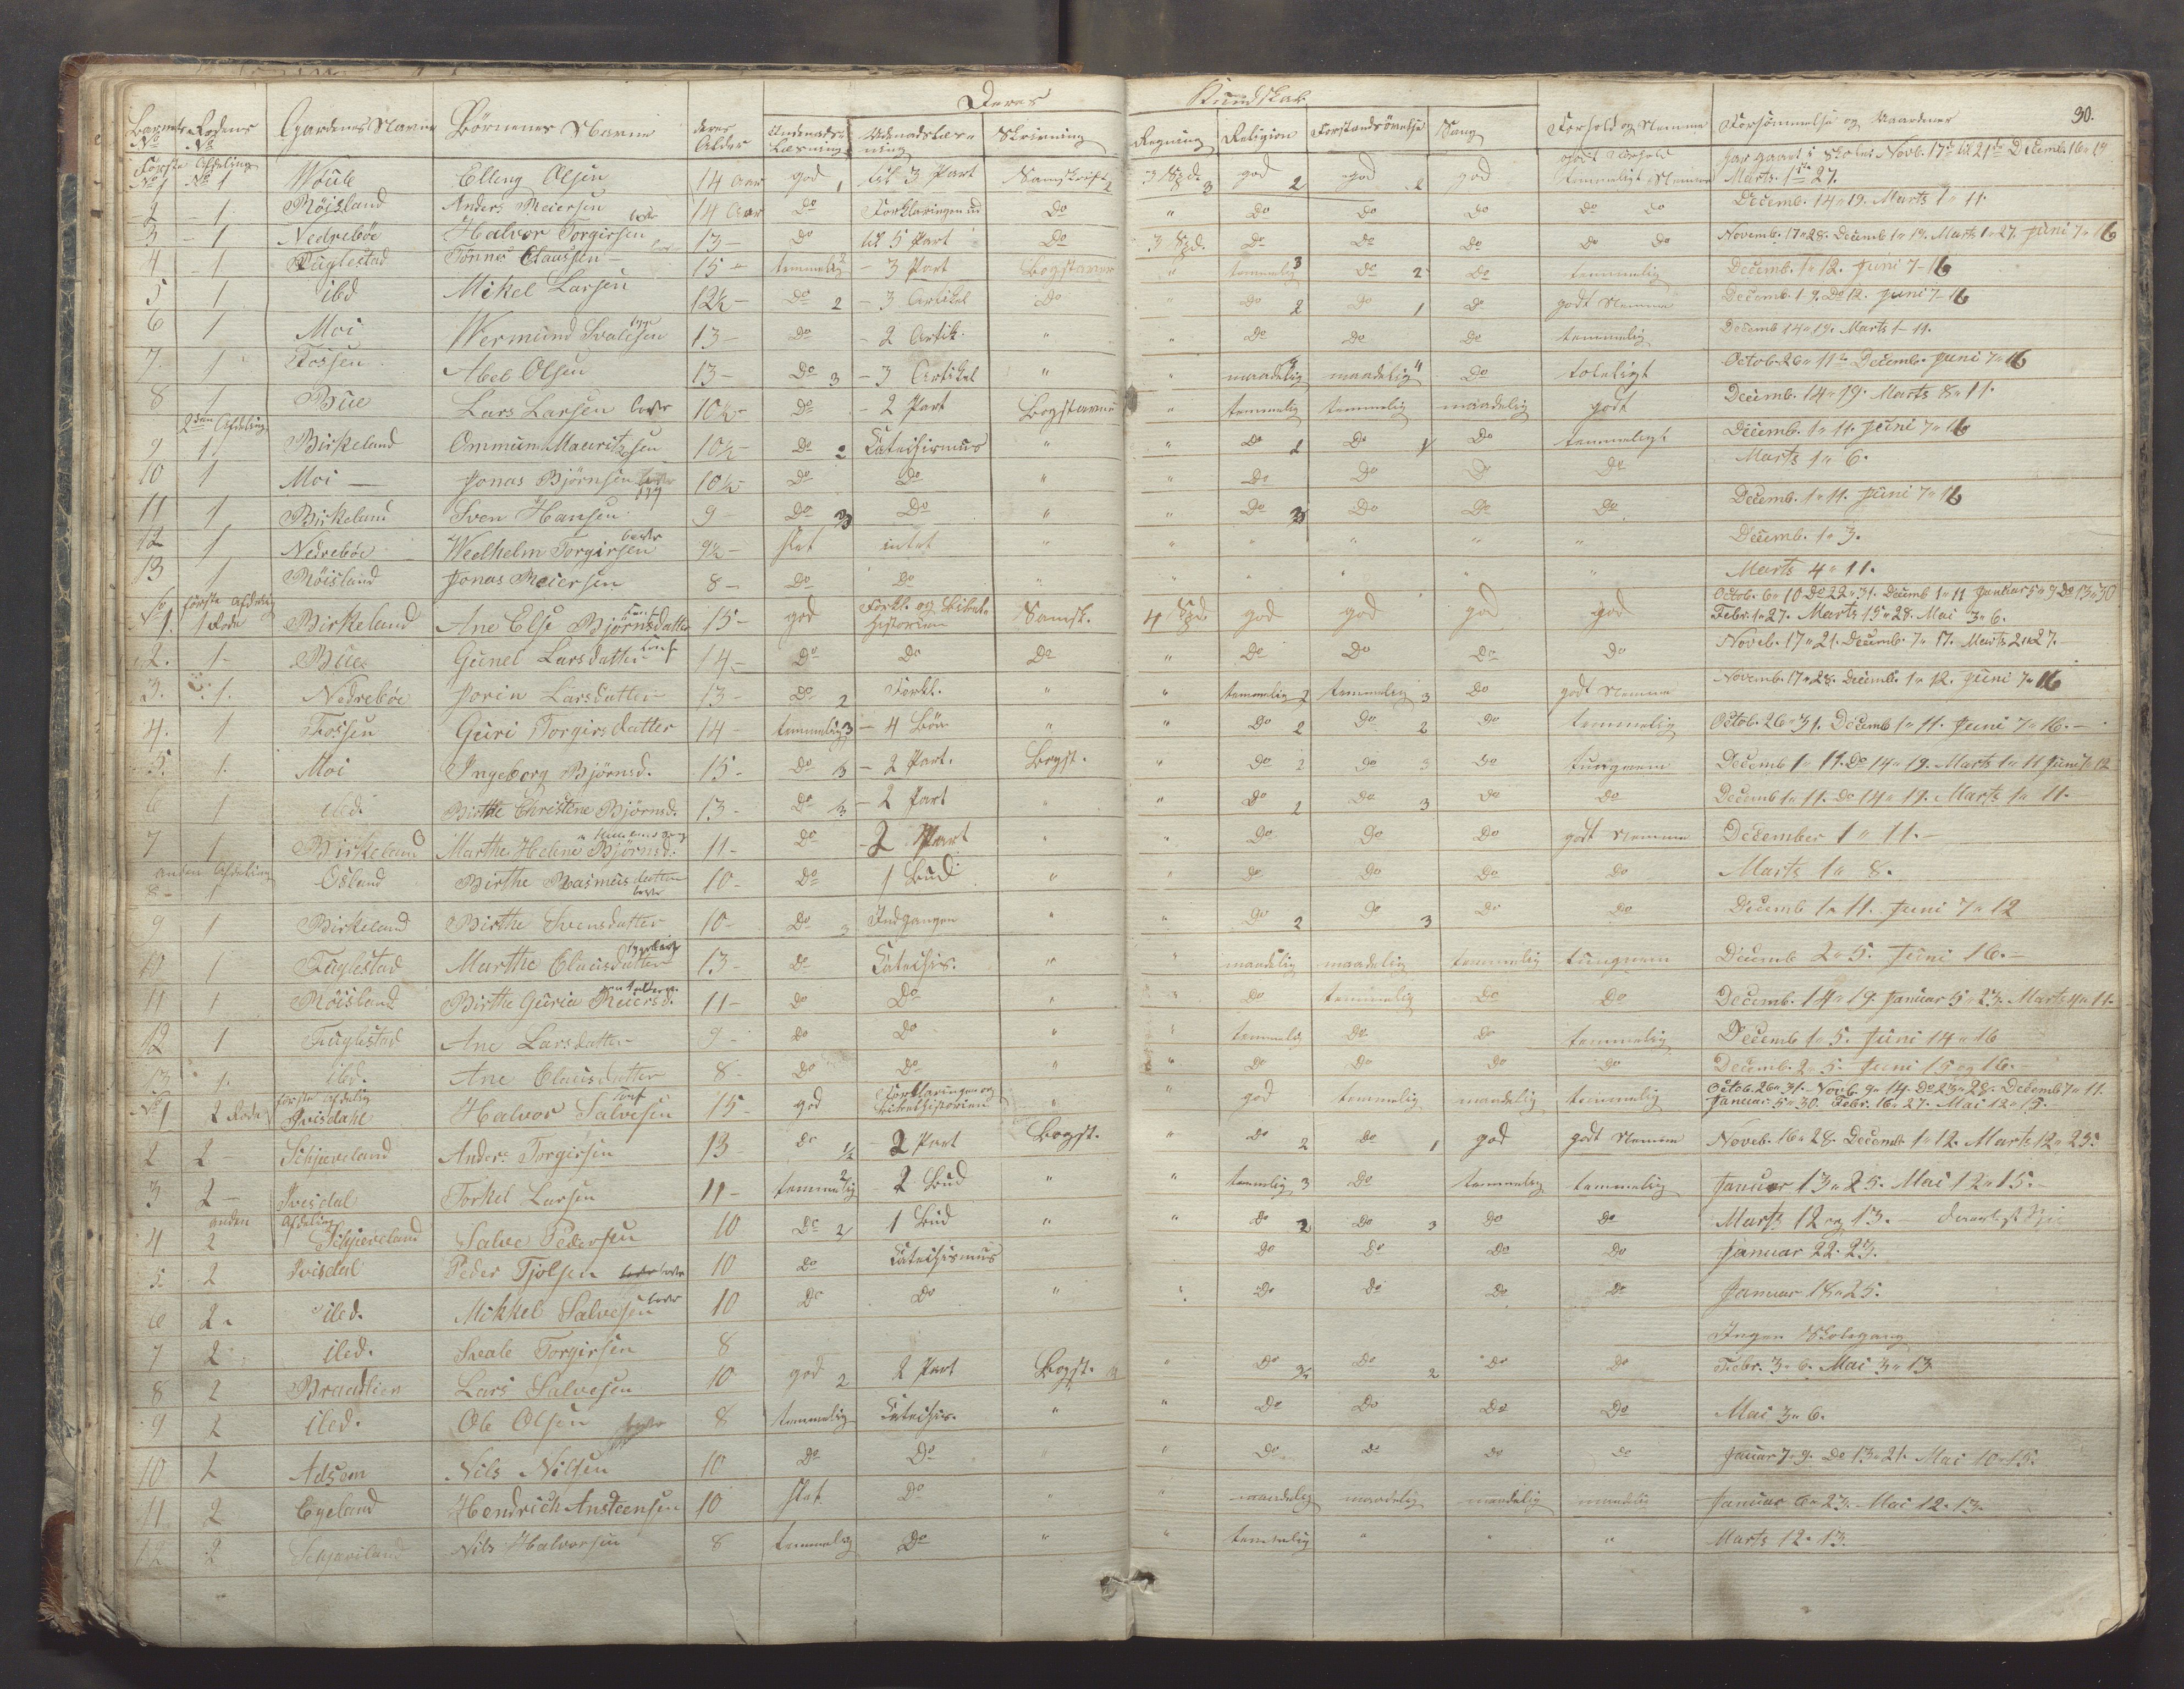 Deres Kundskab 30.
Barnets No Rodens No Gardenes Navne Börnenes Navne deres Alder Indenads-Læsning Udenadslæsning Skrivning Regning Religion Forstandsövelse Sang Forhold og Nemme Forsömmelse og
Förste Afdeling godt Forhold har gaaet i Skolen Novb. 17 til 21 Decemb. 16 " 19
No 1 No 1 Woule Elling Olsen 14 Aar god 1 til 3 Part Samskrift 2 3 Spd. 3 god 2 god 2 god temmeligt Nemme Marts 1 27.
2 1 Röisland Anders Reiersen 14 Aar Do Forklaringen ud Do " Do Do Do Do Do Decemb. 14 " 19. Marts 1 " 11.
3 1 Nedreböe Halvor Torgirsen 13 Do til 5 Part Do 3 Spd. Do Do Do Do Do Novemb. 17 " 28. Decemb 1 " 19. Marts 1 " 27. Juni 7 " 16
4 1 Fuglestad Tönnes Claussen 15 temmelig 2 3 Part Bogstaver " temmelig 3 Do 2 Do temmelig Decemb. 1 " 12. Juni 7 - 16
5 1 ibd Mikel Larsen 12½ Do 2 3 Artikel Do " Do 2 Do 1 Do godt Nemme Decemb. 1 - 9. Do 12. Juni 7 - 16
6 1 Moi Wermund Svalesen 13 Do 2 Artik. " " Do Do Do temmelig Decemb 14 " 19. Marts 1 - 11.
7 1 Fossen Abel Olsen 13 Do 3 3 Artikel " " maadelig maadelig Do toleligt Octob. 26 " Decemb. Juni 7 " 16
8 1 Bue Lars Larsen 10½ Do 2 Part Bogstaver " temmelig temmelig maadelig godt Decemb. 14 " 19. Marts 8 " 11.
2den Afdeling
9 1 Birkeland Ommund Mauritzsen 10½ Do 2 Catechismus " " Do Do Do temmeligt Decemb. 1 " 11. Juni 7 " 16
10 1 Moi Jonas Björnsen 10½ Do Do " " Do Do Do Do Marts 1 " 6.
11 1 Birkeland Sven Hansen 9 Do 3 Do " " Do 3 Do Do Do Decemb. 1 " 11. Juni 7 " 16
12 1 Nedreböe Weelhelm Torgirsen 9½ slet intet " " " " " " Decemb. 1 " 3.
13 1 Röisland Jonas Reiersen 8 Do Do " " " " " " Marts 4 " 11.
förste Afdeling Octob. 6 " 10 Do 22 " 31. Decemb 1 " 11 Januar 5 " 9 Do 13 " 30
No 1. 1 Rode Birkeland Ane Else Björnsdatter 15 god Forkl. og Bibelhistorien Samsk. 4 Spd. god god god god Febr. 1 " 27. Marts 15 " 28. Mai 3 " 6.
2. 1 Bue Gunel Larsdatter 14 Do Do Do " Do Do Do Do Noveb. 17 " 21. Decemb. 7 " 17. Marts 2 " 27.
3. 1. Nedreböe Jorin Larsdatter 13 Do 2 Forkl. " " temmelig 2 temmelig 3 Do godt Nemme Novemb. 17 " 28. Decemb. 1 " 12. Juni 7 " 16
4. 1 Fossen Guri Torgirsdatter 14 temmelig 3 4 Bön " " Do 2 Do 2 Do temmelig Octob. 26 " 31. Decemb 1 " 11. Juni 7 " 16.
5. 1. Moi Ingeborg Björnsd. 15 Do 3 2 Part. Bogst. " Do 2 Do 3 Do tungnem Decemb 1 " 11. Do 14 " 19. Marts 1 " 11 Juni 7 " 12
6 1 ibd. Birthe Christine Björnsd. 13 Do 2 Part " " Do 2 Do 3 Do Do Decemb 1 " 11. Do 14 " 19. Marts 1 " 11.
7 1 Birkeland Marthe Helene Björnsd. 11 Do 2 Part " " Do Do Do godt Nemme December 1 " 11.
anden Afdeling
8 1 Osland Birthe Rasmusdatter 10 Do 1 Bud " " Do Do Do Do Marts 1 " 8.
9 1 Birkeland Birthe Svensdatter 10 Do 3 Indgangen " " Do 2 Do 3 Do Do Decemb 1 " 11. Juni 7 " 12
10 1 Fuglestad Marthe Clausdatter 13 Do Catechis. " " maadelig maadelig temmelig tungnem Decemb 2 " 5. Juni 16.
11 1 Röisland Birthe Guria Reiersd. 11 Do Do " " Do temmelig Do Do Decemb. 14 " 19. Januar 5 " 23. Marts 4 " 11.
12 1 Fuglestad Ane Larsdatter 9 Do Do " " temmelig Do Do temmelig Decemb 1 " 5. Juni 14 " 16
13 1. ibd. Ane Clausdatter 8 Do Do " " Do Do Do Do Decemb. 2 " 5. Juni 15 og 16.
förste Afdelig Octob. 26 " 31. Novb. 9 " 14. Do 23 " 28. Decemb 7 " 11.
No 1 2 Rode Ivisdahl Halvor Salvesen 15 god Forklaringen og Bibelhistorien " " god temmelig maadelig temmelig Januar 5 " 30. Febr. 16 " 27. Mai 12 " 15.
2 2 Schjæveland Anders Torgirsen 13 Do 2 Part Bogst. " Do 2 Do 1 god godt Nemme Noveb. 16 " 28. Decemb 1 " 12. Marts 12 " 23.
3 2 Ivisdal Torkel Larsen 11 temmelig 2 Bud " " temmelig 3 Do temmelig temmelig Januar 13 " 25. Mai 12 " 15.
anden Afdeling
4 2 Schjæveland Salve Pedersen 10 Do 2 1 Bud " " Do 2 Do 3 Do Do Marts 12 og 13.
5 2 Ivisdal Peder Tjölsen 10 Do Catechismus Do Do Do Do Januar 22. 23.
6 2 ibd. Mikkel Salvesen 10 Do Do " " Do Do Do Do Januar 18 " 25.
7 2 ibd. Svale Torgirsen 8 Ingen Skolegang
8 2 Braadlien Lars Salvesen 10 god 2 2 Part Bogst. " Do Do 2 Do Do Febr. 3 " 6. Mai 3 " 13
9 2 ibd. Ole Olsen 8 temmelig Catechis. " " Do Do Do Do Mai 3 " 6.
10 2 Adsem Nils Nilsen 10 Do Do " " Do Do Do Do Januar 7 " 9. Do 13 " 21. Mai 10 " 15.
11 2 Egeland Hendrich Ansteensen 10 slet Do " " maadelig maadelig maadelig maadelig Januar 6 " 23. Mai 12. 13.
12 2 Schjæveland Nils Halvorsen 8 temmelig Do " " temmelig " " " Marts 12. 13.